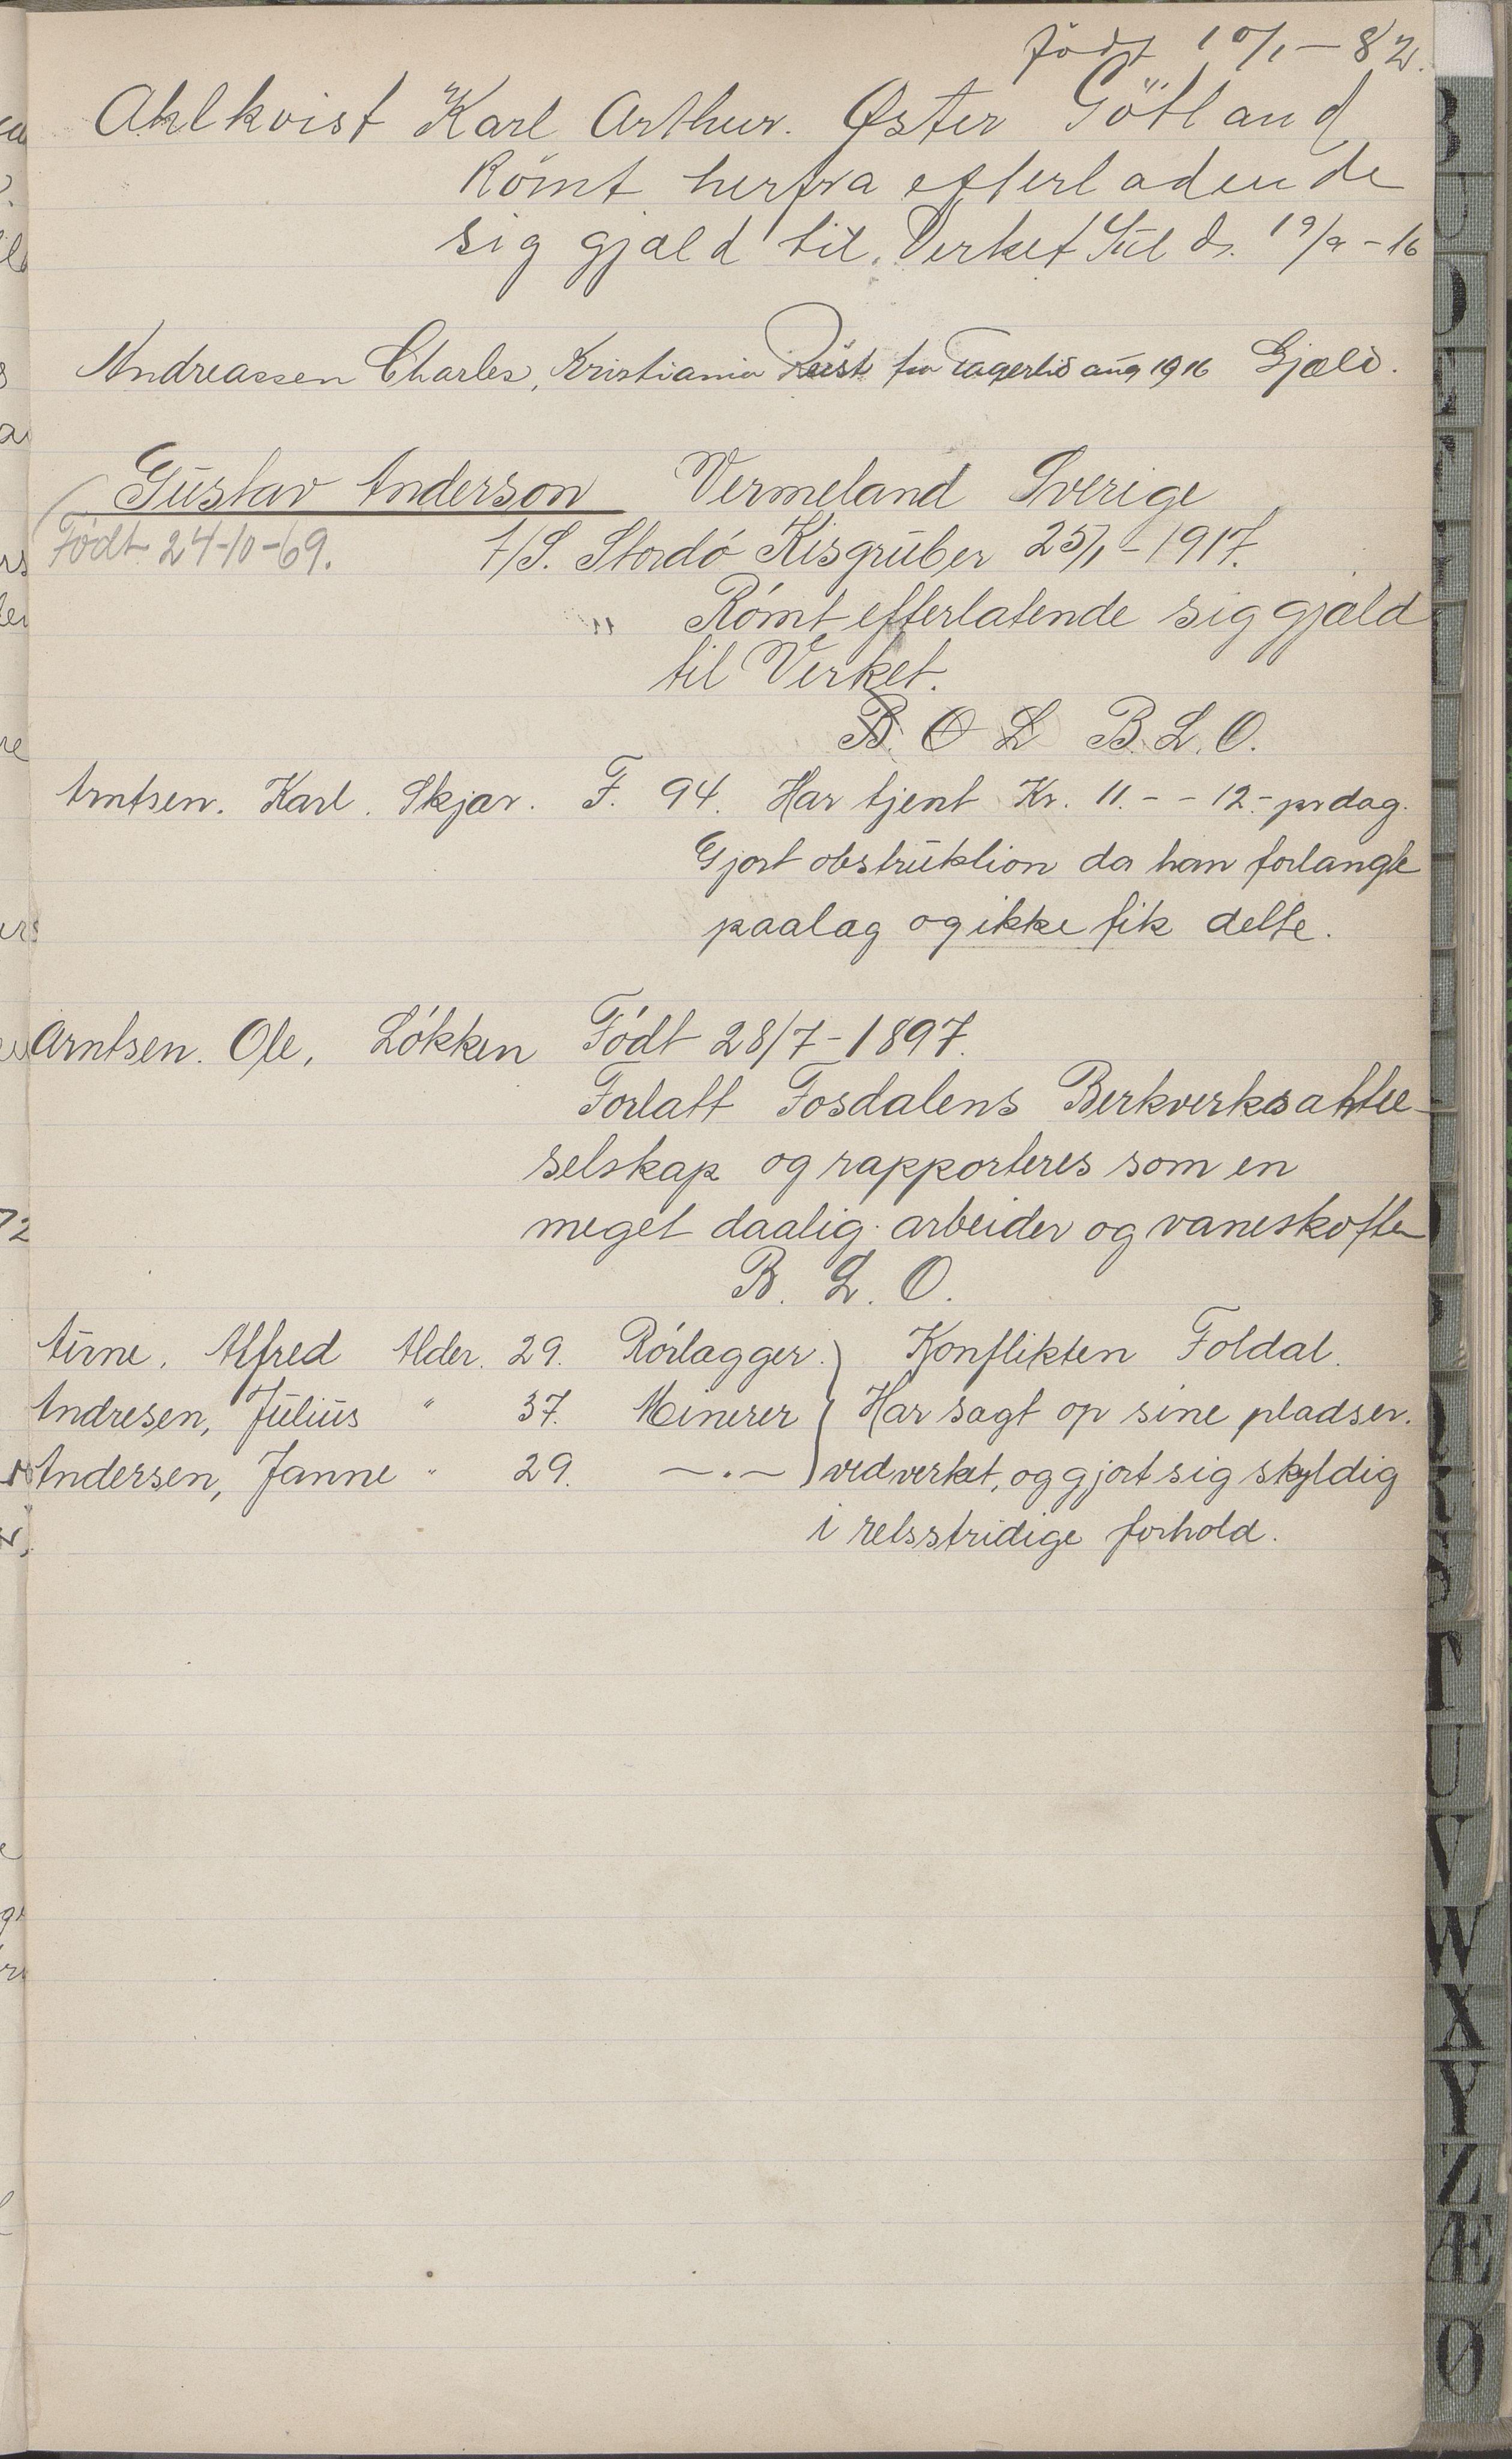 født 10/1 – 82.
Ahlkvist Karl Arthur. Øster Götland
Römt herfra efterladende
sig gjæld til Verket Sul d. 19/9 – 16
Andreassen Charles, Kristiania Reist fra Fagerlid aug 1916 Gjæld.
Gustav Anderson Vermeland Sverige
Født 24-10-69. A/S. Stordö Kisgruber 25/1 – 1917.
" Römt efterlatende sig gjæld
til Verket.
B. O L B. L. O.
Arntsen. Karl. Skjær. F. 94. Har tjent Kr. 11.- - 12.- pr dag.
Gjort obstruktion da han forlangte
paalag og ikke fik dette.
Arntsen. Ole, Lökken Født 28/7 – 1897.
Forlatt Fosdalens Berkverksaktie-
selskap og rapporteres som en
meget daalig arbeider og vaneskofter
B. L. O.
Aune, Alfred Alder. 29. Rörlægger. } Konflikten Foldal.
Andresen, Julius " 37. Minerer } Har sagt op sine pladser.
Andersen, Janne " 29. —"— } ved verket, og gjort sig skyldig
i retsstridige forhold.
B
U
D
T
U
V
W
X
Y
Z
Æ
Ø